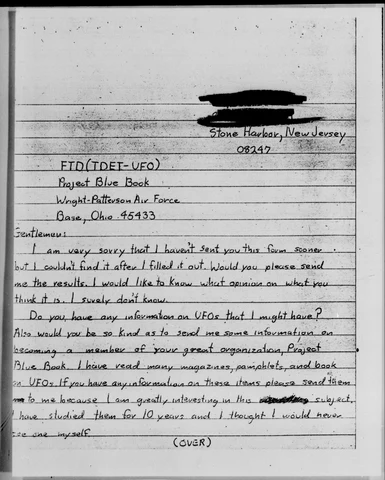 Stone Harbor, New Jersey
08247
FTD(TDET-UFO)
Project Blue Book
Wright-Patterson Air Force
Base, Ohio 45433
Gentlemen:
I am very sorry that I haven't sent you this form sooner
but I couldn't find it after I filled it out. Would you please send
me the results. I would like to know what opinion on what you
think it is. I surely don't know.
Do you, have any information on UFOs that I might have?
Also would you be so kind as to send me some information on
becoming a member of your great organization, Project
Blue Book. I have read many magazines, pamphlets, and book
on UFOs. If you have any information on these items please send them
to me because I am greatly interesting in this subject.
I have studied them for 10 years and I thought I would never
see one myself.
(OVER)